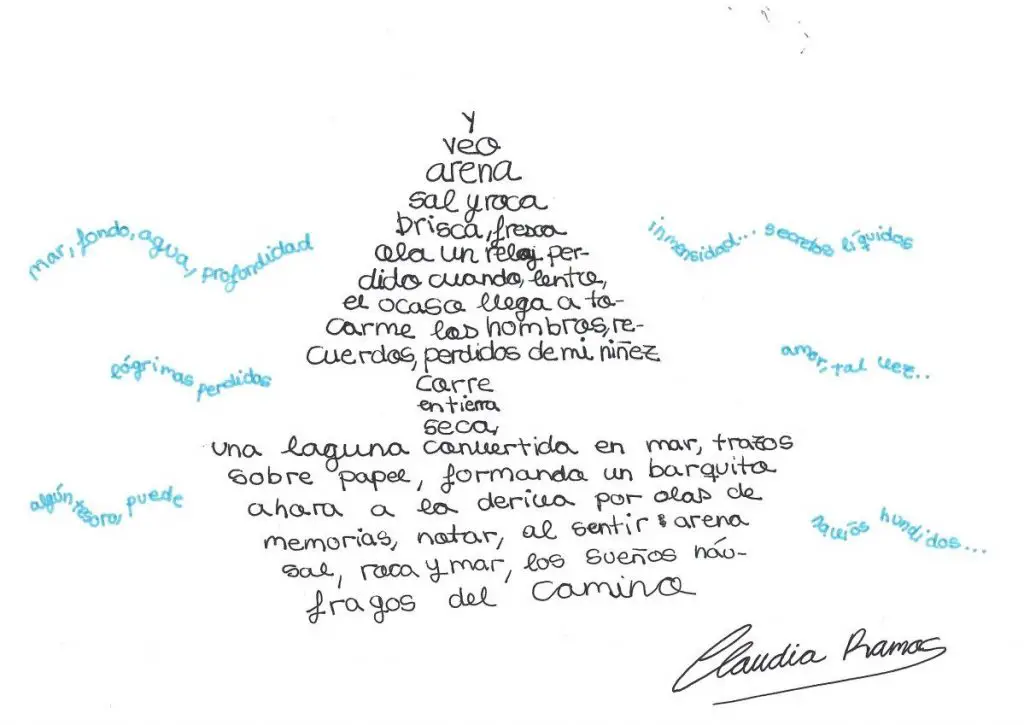 y
veo
arena
sal y roca
brisca, fresca
ola un reloj per-
dido cuando, lento,
el ocaso llega a to-
carme los hombros, re-
cuerdos, perdidos de mi niñez
corre
en tierra
seca,
una laguna convertida en mar, trazos
sobre papel, formando un barquito
ahora a la deriva por olas de
memorias, notar, al sentir: arena
sal, roca y mar, los sueños náu-
fragos del camino
mar, fondo, agua, profondidad
inmensidad... secretos líquidos
lágrimas perdidas
amor, tal vez..
algún tesoro, puede
sueños hundidos...
Claudia Ramos